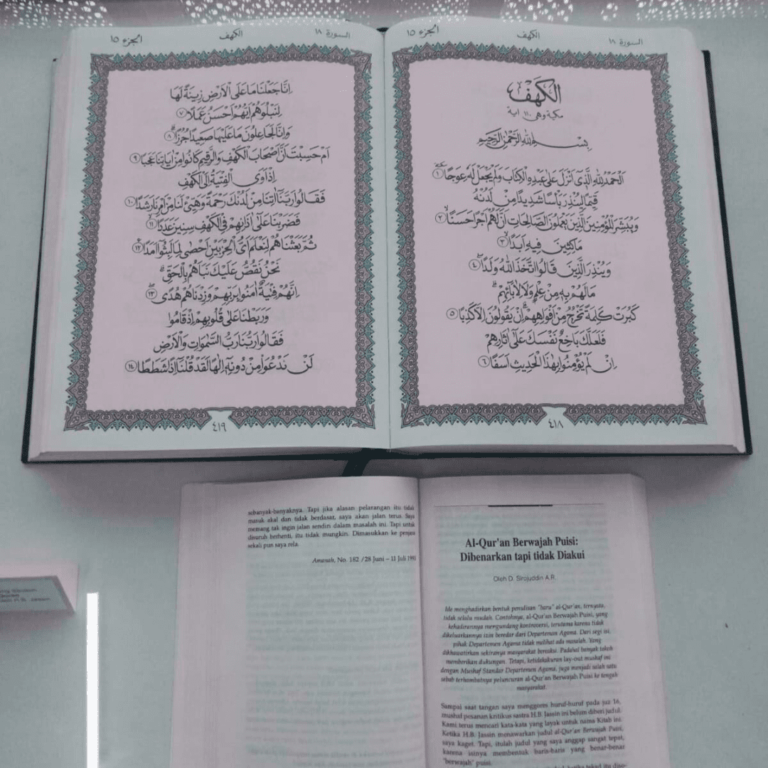 السورة ١٨
الكهف
الجزء ١٥
الكهف
بسم الله الرحمن الرحيم
الحمد لله الذى انزل على عبده الكتاب ولم يجعل له عوجا ١
قيما لينذر باسا شديدا من لدنه
ويبشر المؤمنين الذين يعملون الصالحات ان لهم اجرا حسنا ٢
ماكثين فيه ابدا ٣
وينذر الذين قالوا اتخذ الله ولدا ٤
ما لهم به من علم ولا لابائهم
كبرت كلمة تخرج من افواههم ان يقولون الا كذبا ٥
فلعلك باخع نفسك على اثارهم
ان لم يؤمنوا بهذا الحديث اسفا ٦
٤١٨
السورة ١٨
الكهف
الجزء ١٥
انا جعلنا ما على الارض زينة لها
لنبلوهم ايهم احسن عملا ٧
وانا لجاعلون ما عليها صعيدا جرزا ٨
ام حسبت ان اصحاب الكهف والرقيم كانوا من اياتنا عجبا ٩
اذ اوى الفتية الى الكهف
فقالوا ربنا اتنا من لدنك رحمة وهيئ لنا من امرنا رشدا ١٠
فضربنا على اذانهم فى الكهف سنين عددا ١١
ثم بعثناهم لنعلم اى الحزبين احصى لما لبثوا امدا ١٢
نحن نقص عليك نباهم بالحق
انهم فتية امنوا بربهم وزدناهم هدى ١٣
وربطنا على قلوبهم اذ قاموا
فقالوا ربنا رب السموات والارض
لن ندعوا من دونه الها لقد قلنا اذا شططا ١٤
٤١٩
sebanyak-banyaknya. Tapi jika alasan pelarangan itu tidak
masuk akal dan tidak berdasar, saya akan jalan terus. Saya
memang tak ingin jalan sendiri dalam masalah ini. Tapi untuk
disuruh berhenti, itu tidak mungkin. Dimasukkan ke penjara
sekali pun saya rela.
Amanah, No. 182 /28 Juni - 11 Juli 199
Al-Qur'an Berwajah Puisi:
Dibenarkan tapi tidak Diakui
Oleh D. Sirojuddin A.R.
Ide menghadirkan bentuk penulisan "baru" al-Qur'an, ternyata,
tidak selalu mudah. Contohnya, al-Qur'an Berwajah Puisi, yang
kehadirannya mengundang kontroversi, terutama karena tidak
dikeluarkannya izin beredar dari Departemen Agama. Dari segi isi,
pihak Departemen Agama tidak melihat ada masalah. Yang
dikhawatirkan sekiranya masyarakat bereaksi. Padahal banyak tokoh
memberikan dukungan. Tetapi, ketidakbakuan lay-out mushaf ini
dengan Mushaf Standar Departemen Agama, juga menjadi salah satu
sebab terhambatnya peluncuran al-Qur'an Berwajah Puisi ke tengah
masyarakat.
Sampai saat tangan saya menggores huruf-huruf pada juz 16,
mushaf pesanan kritikus sastra H.B. Jassin ini belum diberi judul.
Kami terus mencari kata-kata yang layak untuk nama Kitab ini.
Ketika H.B. Jassin menawarkan judul al-Qur'an Berwajah Puisi,
saya kaget. Tapi, itulah judul yang saya anggap sangat tepat,
karena isinya membentuk baris-baris yang benar-benar
"berwajah" puisi.